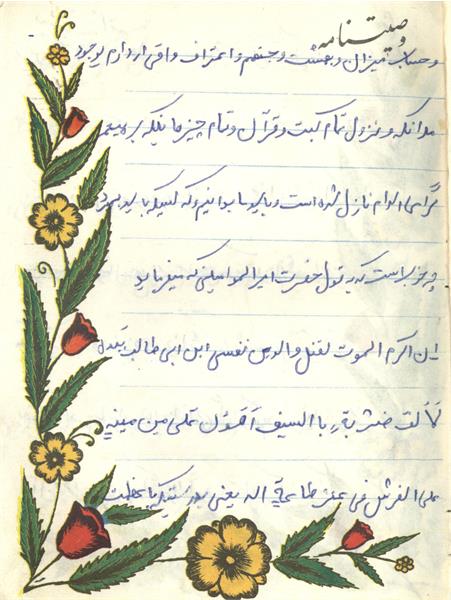 وصیتنامه
و حساب میزان و بهشت و جهنم و اعتراف واقعی دارم بوجود
ملائکه و نزول تمام کتب و قرآن و تمام چیزهائیکه بر پیغمبر
گرامی اسلام نازل شده است و باید ما بدانیم که کسیکه باید بمیرد
چه خوبست که به قول حضرت امیرالمؤمنین که میفرماید
ان اکرم الموت لقتل والذی نفسی ابن ابی طالب بیده
لالف ضربة با السیف اهون علی من میتة
علی الفرش فی غیر طاعة اله یعنی بدرستیکه با عظمت